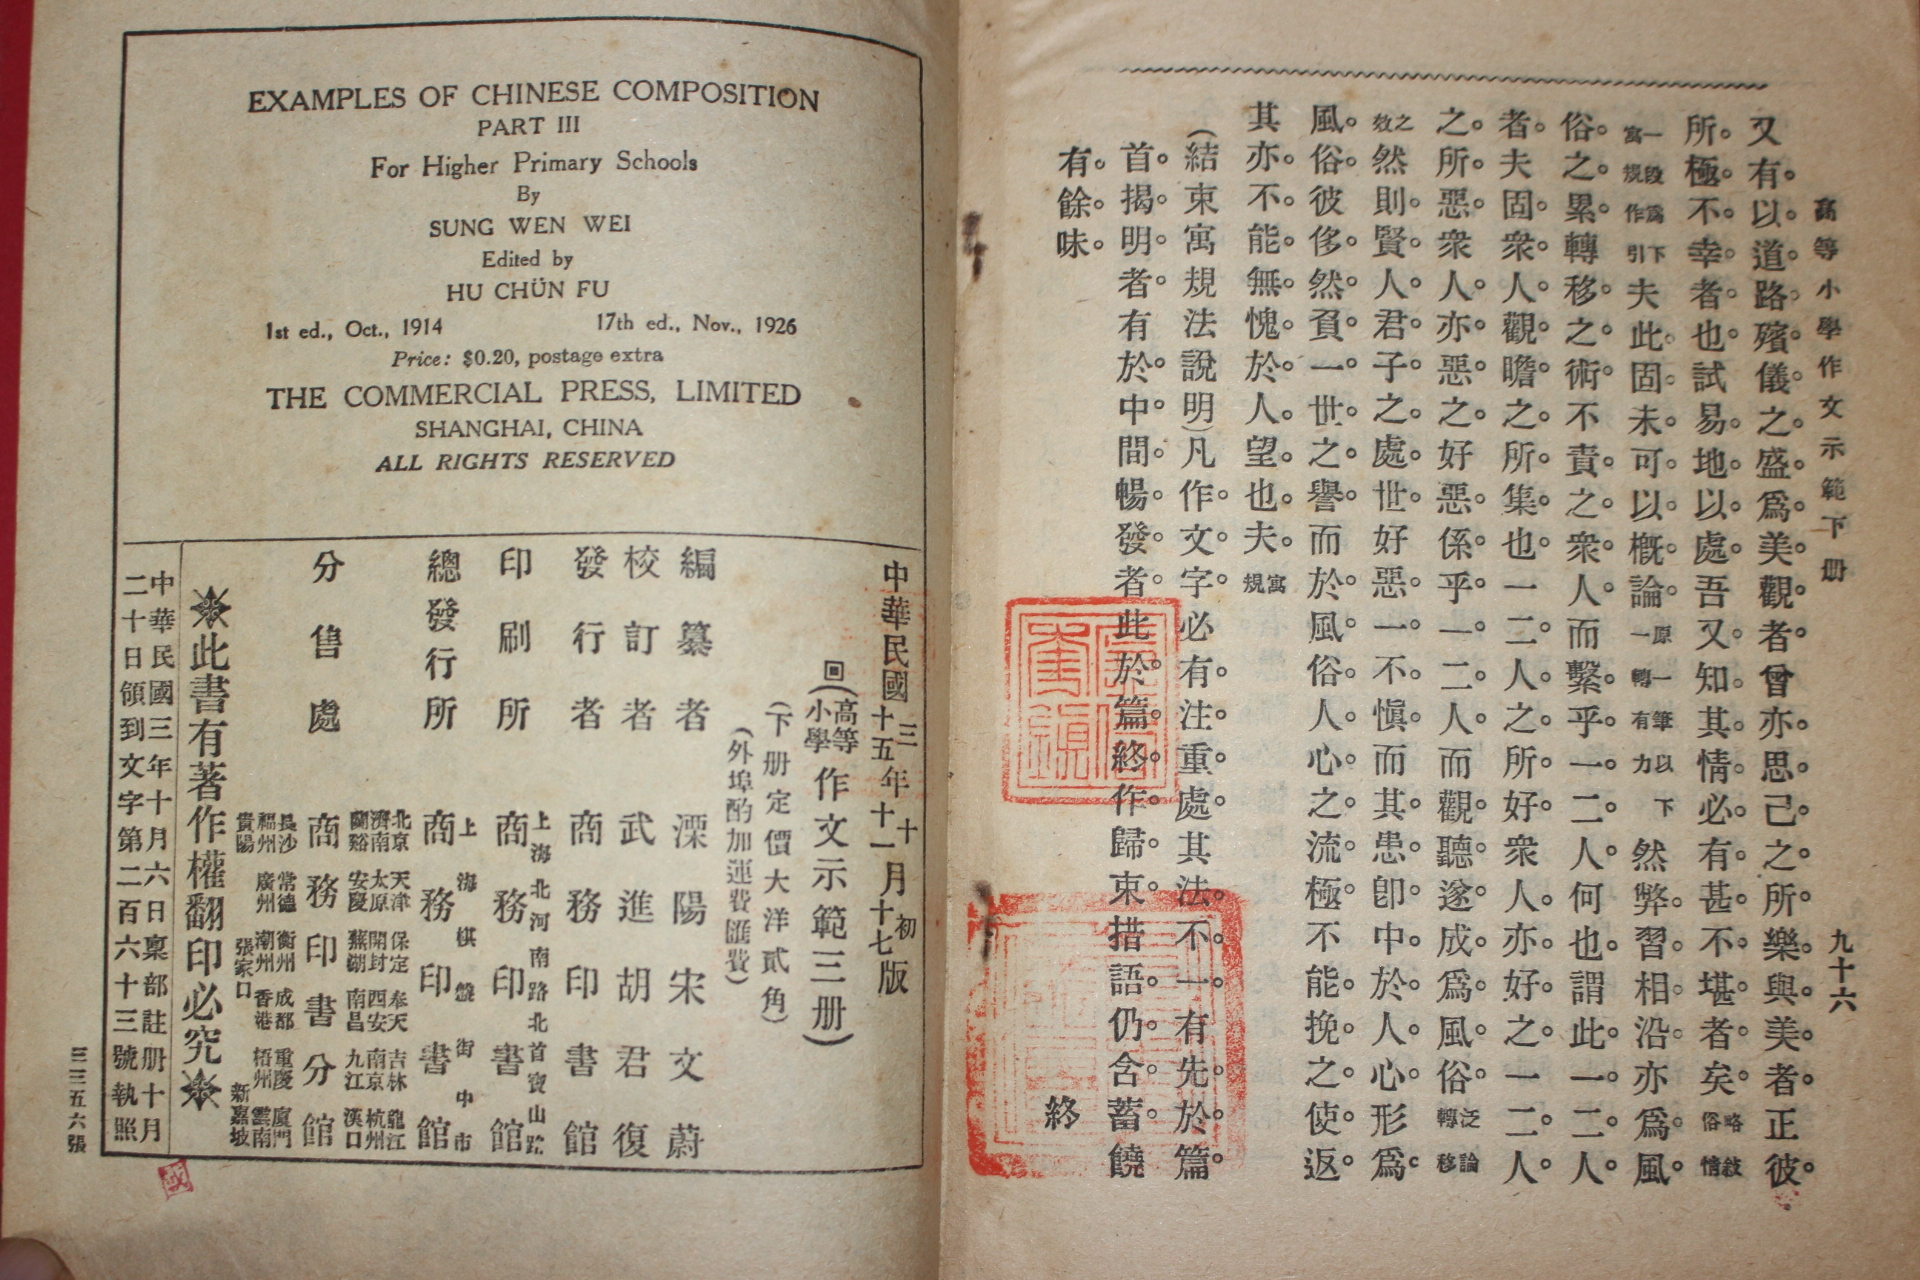 高等小學作文示範下册
九十六
又有。以。道。路。殯。儀。之。盛。爲。美。觀。者。曾亦。思。己。之。所。樂。與。美。者。正彼。
所。極。不。幸。者。也。試易。地。以。處。吾又。知。其。情。必。有。甚。不。堪。者。矣。略敍俗情
一段爲下寓規作引夫此。固。未。可。以。概。論。原一筆以一轉有力下然弊。習。相。沿。亦爲。風。
俗。之。累。轉移。之。術。不責。之。衆。人。而繫。乎。一。二。人。何。也。謂此。一。二。人。
者。夫固。衆。人。觀。瞻。之。所。集。也。一二。人。之。所。好。衆人。亦。好。之。一二。人。
之。所。惡。衆人。亦。惡。之。好惡。係。乎。一。二。人。而觀。聽。遂成。爲。風。俗。泛論轉移
之效然則。賢。人。君。子。之。處。世。好惡。一。不。愼。而其。患。卽。中。於。人。心。形爲。
風。俗。彼侈。然。負。一。世。之。譽。而於。風。俗。人。心。之。流。極。不能。挽。之。使。返。
其亦。不。能。無。愧。於。人。望。也。夫。寓規
(結束寓規法說明)凡作。文。字。必有。注。重。處。其法。不。一。有先。於。篇。
首。揭。明。者。有於。中。間。暢。發。者。此。於。篇。終。作。歸。束。措。語。仍。含。蓄。饒
有。餘。味。
終
EXAMPLES OF CHINESE COMPOSITION
PART III
For Higher Primary Schools
By
SUNG WEN WEI
Edited by
HU CHÜN FU
1st ed., Oct., 1914 17th ed., Nov., 1926
Price: $0.20, postage extra
THE COMMERCIAL PRESS, LIMITED
SHANGHAI, CHINA
ALL RIGHTS RESERVED
中華民國三年十月初版
中華民國十五年十一月十七版
回(高等小學作文示範三册)
(下册定價大洋貳角)
(外埠酌加運費匯費)
編纂者 溧陽宋文蔚
校訂者 武進胡君復
發行者 商務印書館
印刷所 上海北河南路北首寶山路 商務印書館
總發行所 上海棋盤街中市 商務印書館
分售處 北京天津保定奉天吉林龍江濟南太原開封西安南京杭州蘭谿安慶蕪湖南昌九江漢口
商務印書分館
長沙常德衡州成都重慶廈門福州廣州潮州香港梧州雲南貴陽張家口新嘉坡
此書有著作權翻印必究
中華民國三年十月六日稟部註册十月
二十日領到文字第二百六十三號執照
三三五六張